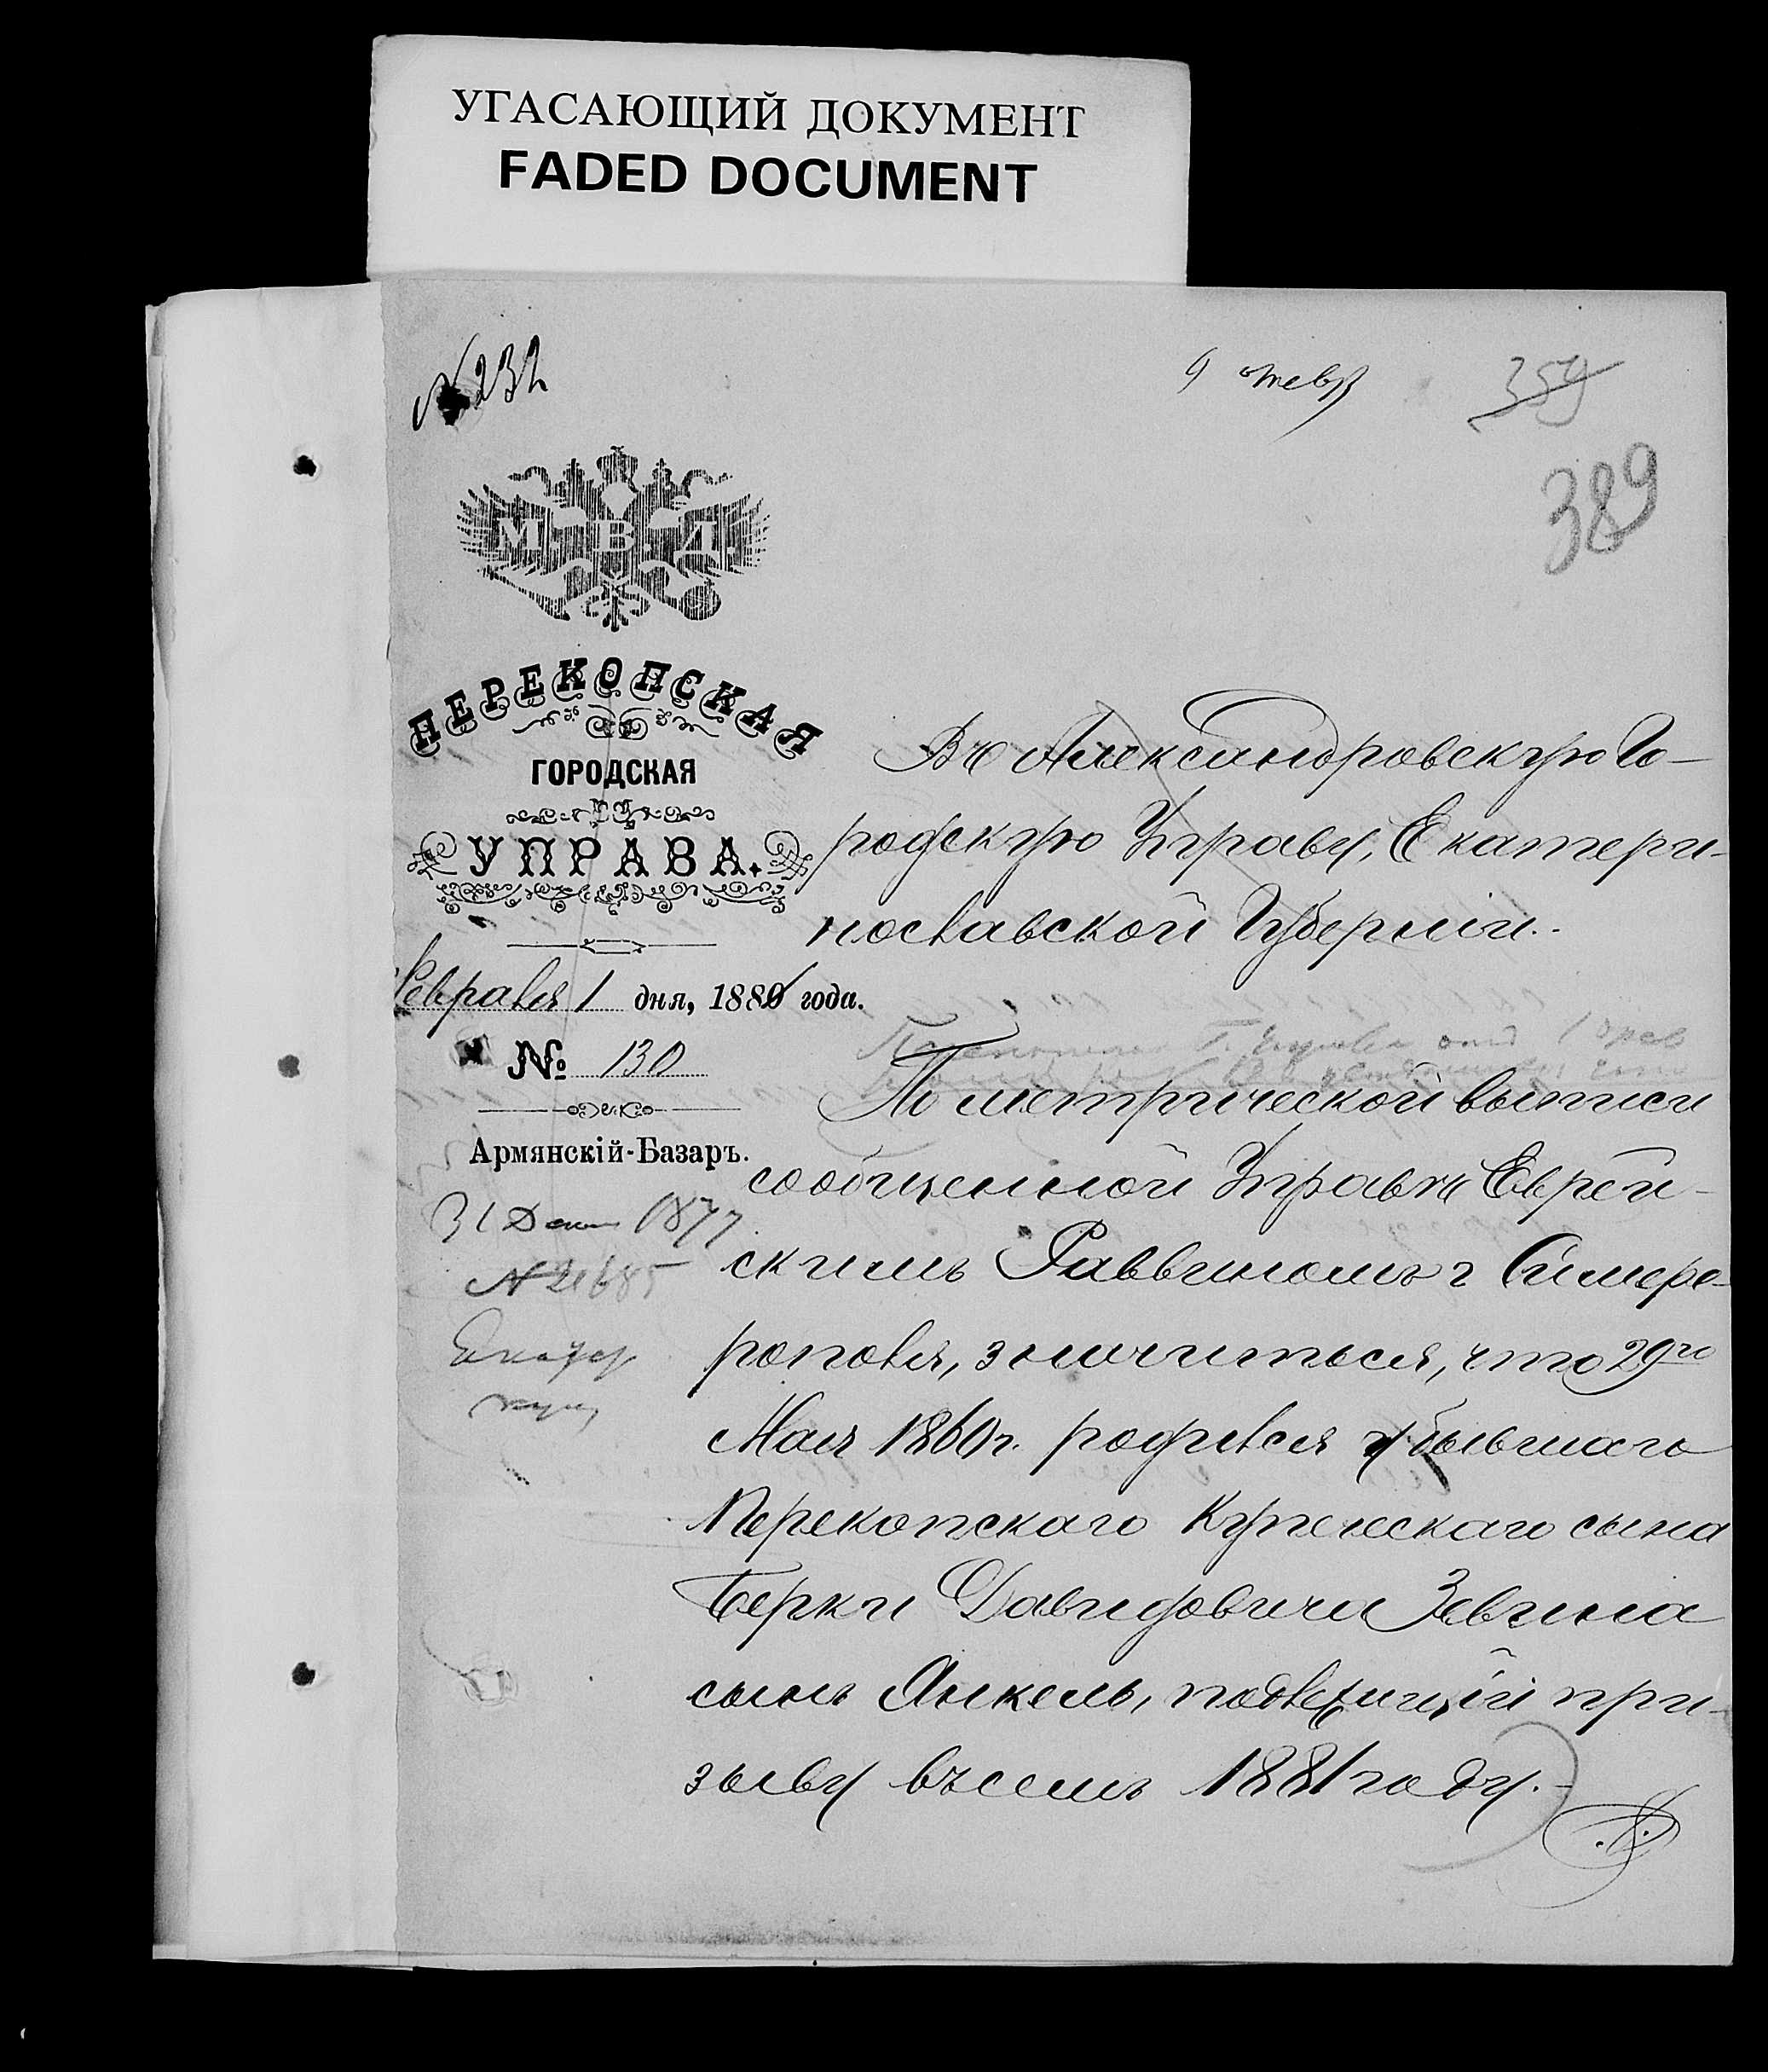 УГАСАЮЩИЙ ДОКУМЕНТ
FADED DOCUMENT
№ 232
9
359
389
М В Д
ПЕРЕКОПСКАЯ
ГОРОДСКАЯ
УПРАВА.
Февраля 1 дня, 1881 года.
№ 130
Армянскій-Базаръ.
31 Дек 1877
№ 21685
Въ Александровскую Го-
родскую Управу, Екатери-
нославской Губерніи.
По метрической выписи
сообщенной Управѣ Еврей-
скимъ Раввиномъ г Симфе-
рополя, значиться, что 29го
Мая 1860 г. родился у бывшаго
Перекопскаго Купеческаго сына
Берки Давидовича Зевина
сынъ Янкель, подлежащій при-
зыву въ семъ 1881 году.